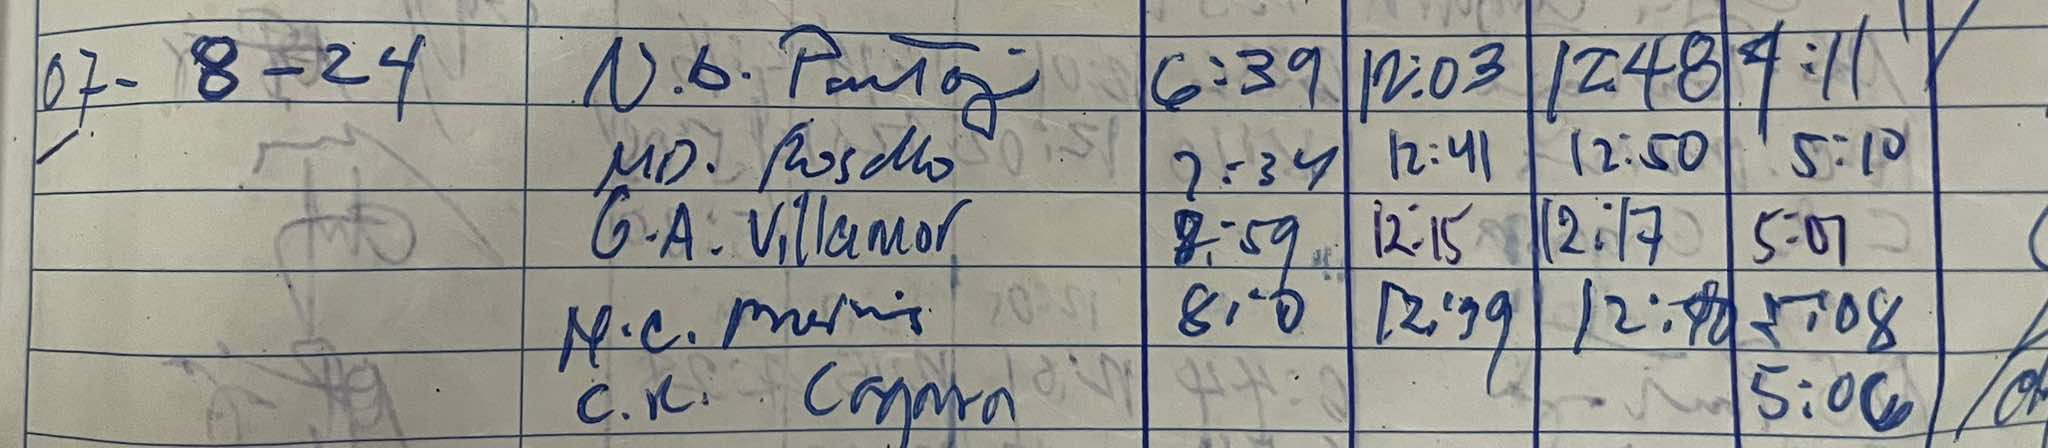 07- 8-24 N.B. Pantoja 6:39 12:03 12:48 4:11
MD. Rosello 7:34 12:41 12:50 5:10
G.A. Villamor 7:59 12:15 12:17 5:01
M.C. 8:10 12:39 12:40 5:08
C.K. Cagara 5:06